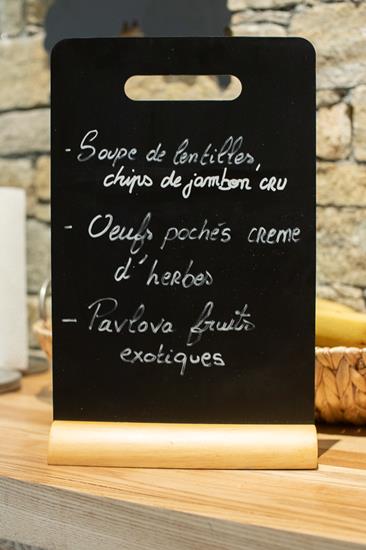 - Soupe de lentilles,
chips de jambon cru
- Oeufs pochés creme
d'herbes
- Pavlova fruits
exotiques